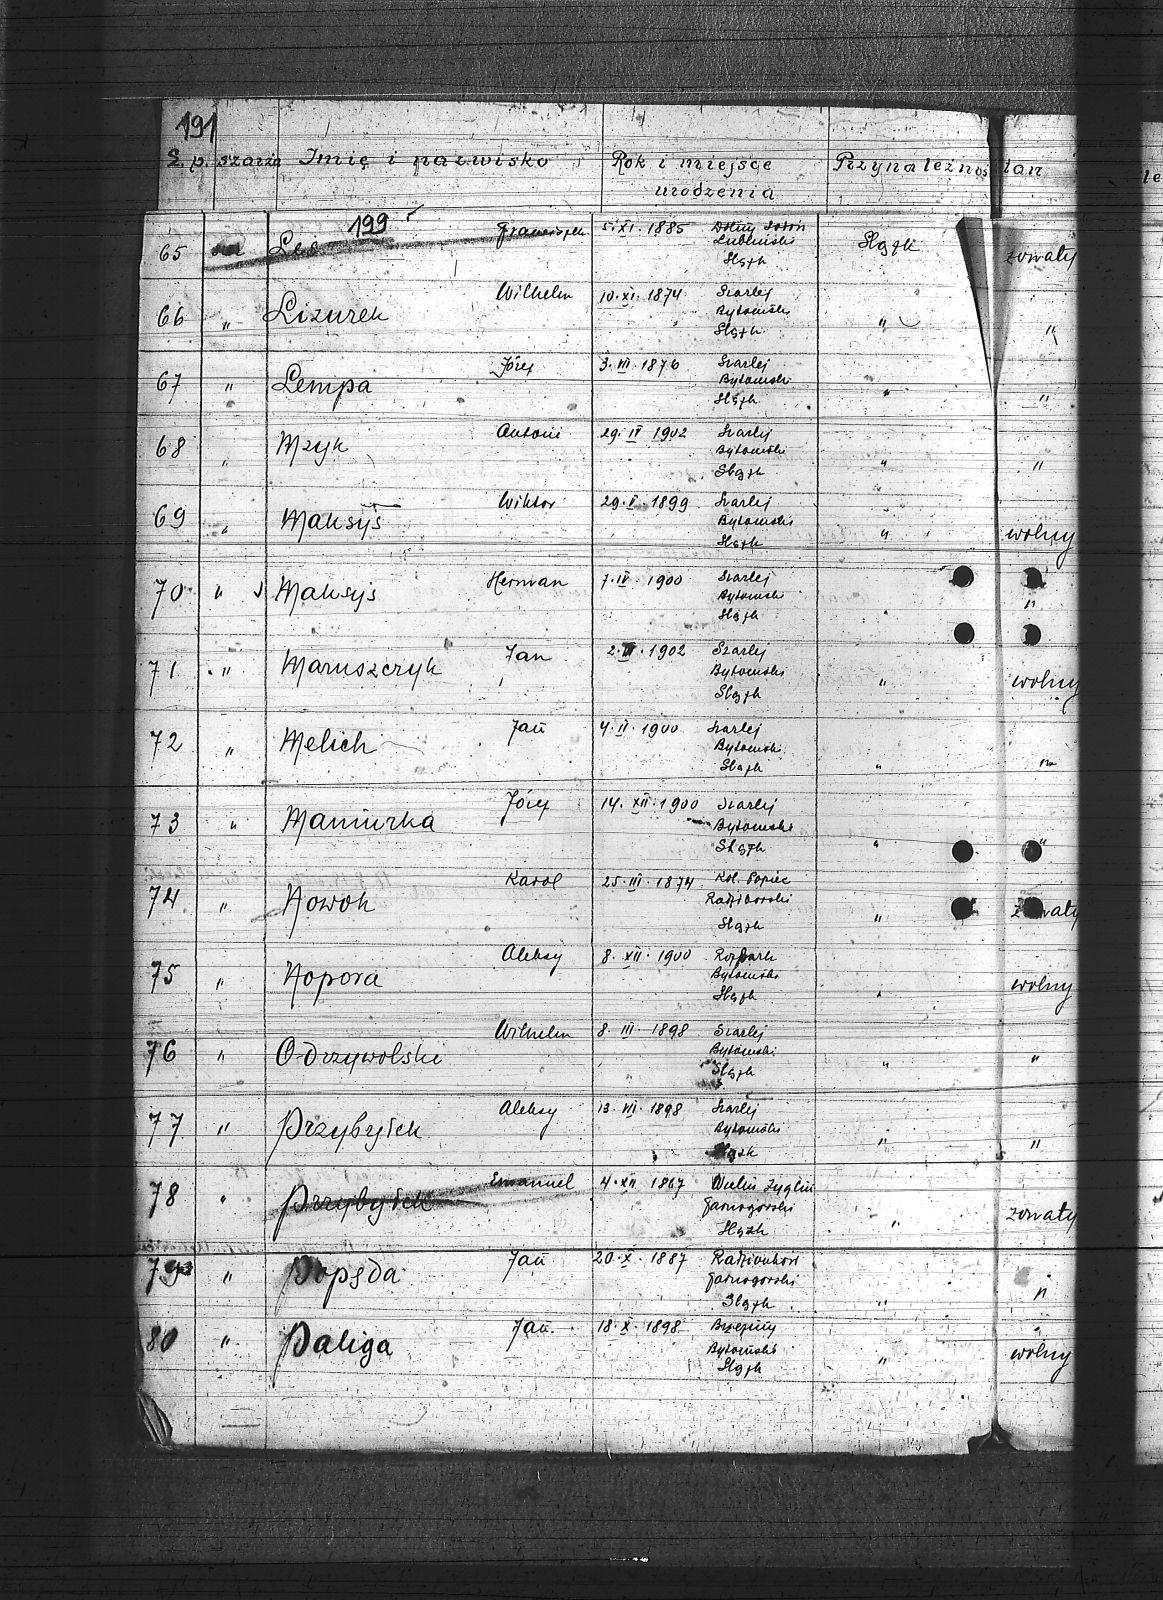 191
L.p. szarża Imię i nazwisko Rok i miejsce urodzenia Przynależnoś tan
199
65 Les Franciszek 5.XI.1885 Lubliniski Śląsk Śląsk żonaty
66 " Lizurek Wilhelm 10.XI.1874 Szarlej Bytomski Śląsk " "
67 " Lempa Józef 3.III.1876 Szarlej Bytomski Śląsk " "
68 " Mzyk Antoni 29.IV 1902 Szarlej Bytomski Śląsk " "
69 " Maksyś Wiktor 29.X.1899 Szarlej Bytomski Śląsk " wolny
70 " Maksyś Herman 7.IV.1900 Szarlej Bytomski Śląsk " "
71. " Maruszczyk Jan 2.1902 Szarlej Bytomski Śląsk " wolny
72 " Melich Jan 4.II.1900 Szarlej Bytomski Śląsk " "
73 " Maniurka Józef 14.XII.1900 Szarlej Bytomski Śląsk " "
74 " Nowok Karol 25.III.1874 Kol. Popiec Raciborski Śląsk " żonaty
75 " Nopora Aleksy 8.XII.1900 Rozbark Bytomski Śląsk " wolny
76 " Odrzywolski Wilhelm 8.III.1898 Szarlej Bytomski Śląsk " "
77 " Przybyłek Aleksy 13.VII.1898 Szarlej Bytomski Śląsk " "
78 " Przybyłek Emanuel 4.XII.1867 Żyglin Tarnogórski Śląsk " żonaty
79 " Popęda Jan 20.X.1887 Radzionków Tarnogorski Śląsk " "
80 " Paliga Jan. 18.X.1898 Brzeziny Bytomski Śląsk " wolny